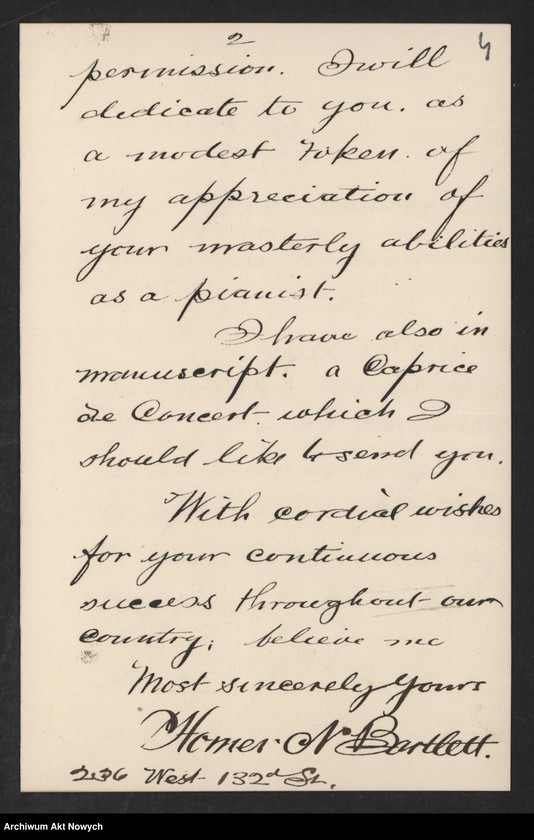 2
4
permission. I will
dedicate to you. as
a modest token. of
my appreciation of
your masterly abilities
as a pianist.
I have also in
manuscript. a Caprice
de Concert. which I
should like to send you.
With cordial wishes
for your continuous
success throughout our
country; believe me
Most sincerely yours
Homer N. Bartlett.
236 West 132d St.
Archiwum Akt Nowych